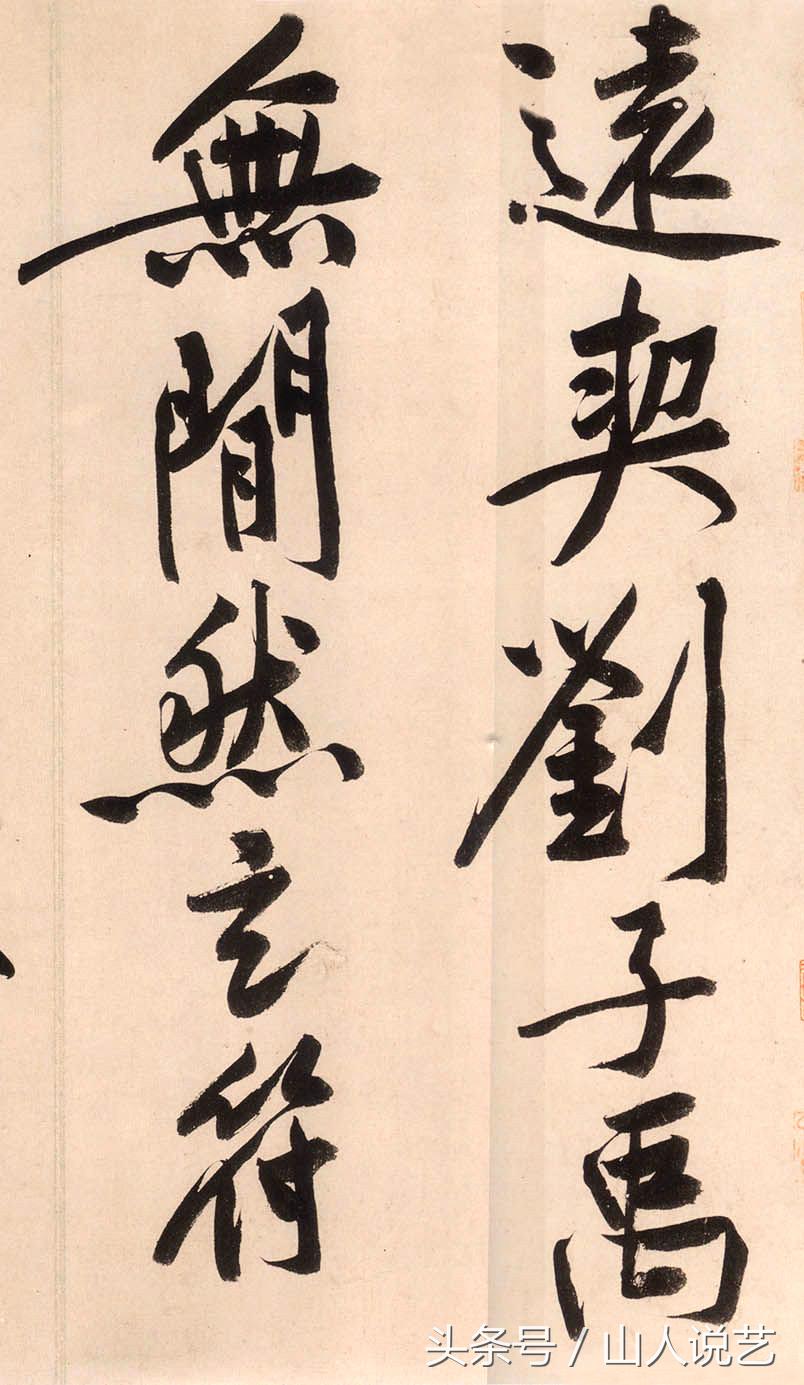 遠契劉子禹
無間然玄符
头条号 / 山人说艺